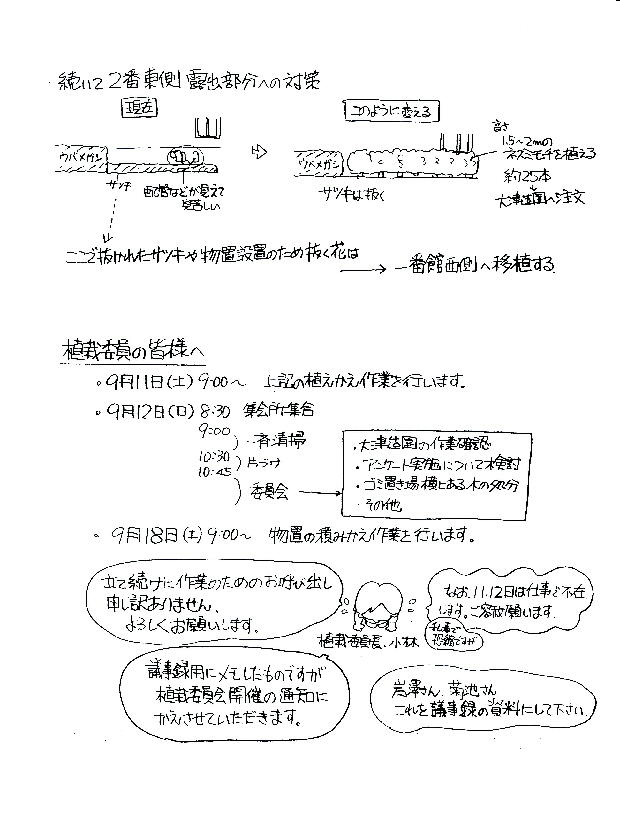 続いて2番東側 露出部分への対策
現在
このように変える
ウバメガシ
サツキ
配管などが見えて
見苦しい
ウバメガシ
サツキは抜く
高さ
1.5~2mの
ネズミモチを植える
約25本
大津造園へ注文
ここで抜かれたサツキや物置設置のため抜く花は
一番館西側へ移植する
植栽委員の皆様へ
。9月11日(土)9:00~ 上記の植えかえ作業を行います。
。9月12日(日)8:30 集会所集合
9:00
一斉清掃
10:30
片づけ
10:45
委員会
・大津造園の作業確認
・アンケート実施について検討
・ゴミ置き場横にある木の処分
・その他
。9月18日(土)9:00~ 物置の積みかえ作業を行います。
立て続けに作業のためのお呼び出し
申し訳ありません、
よろしくお願いします。
植栽委員長、小林
なお、11,12日は仕事で不在
します。ご容赦願います。
私事で
恐縮ですが
議事録用にメモしたものですが
植栽委員会開催の通知に
かえさせていただきます。
岩澤さん、菊池さん
これを議事録の資料にして下さい。